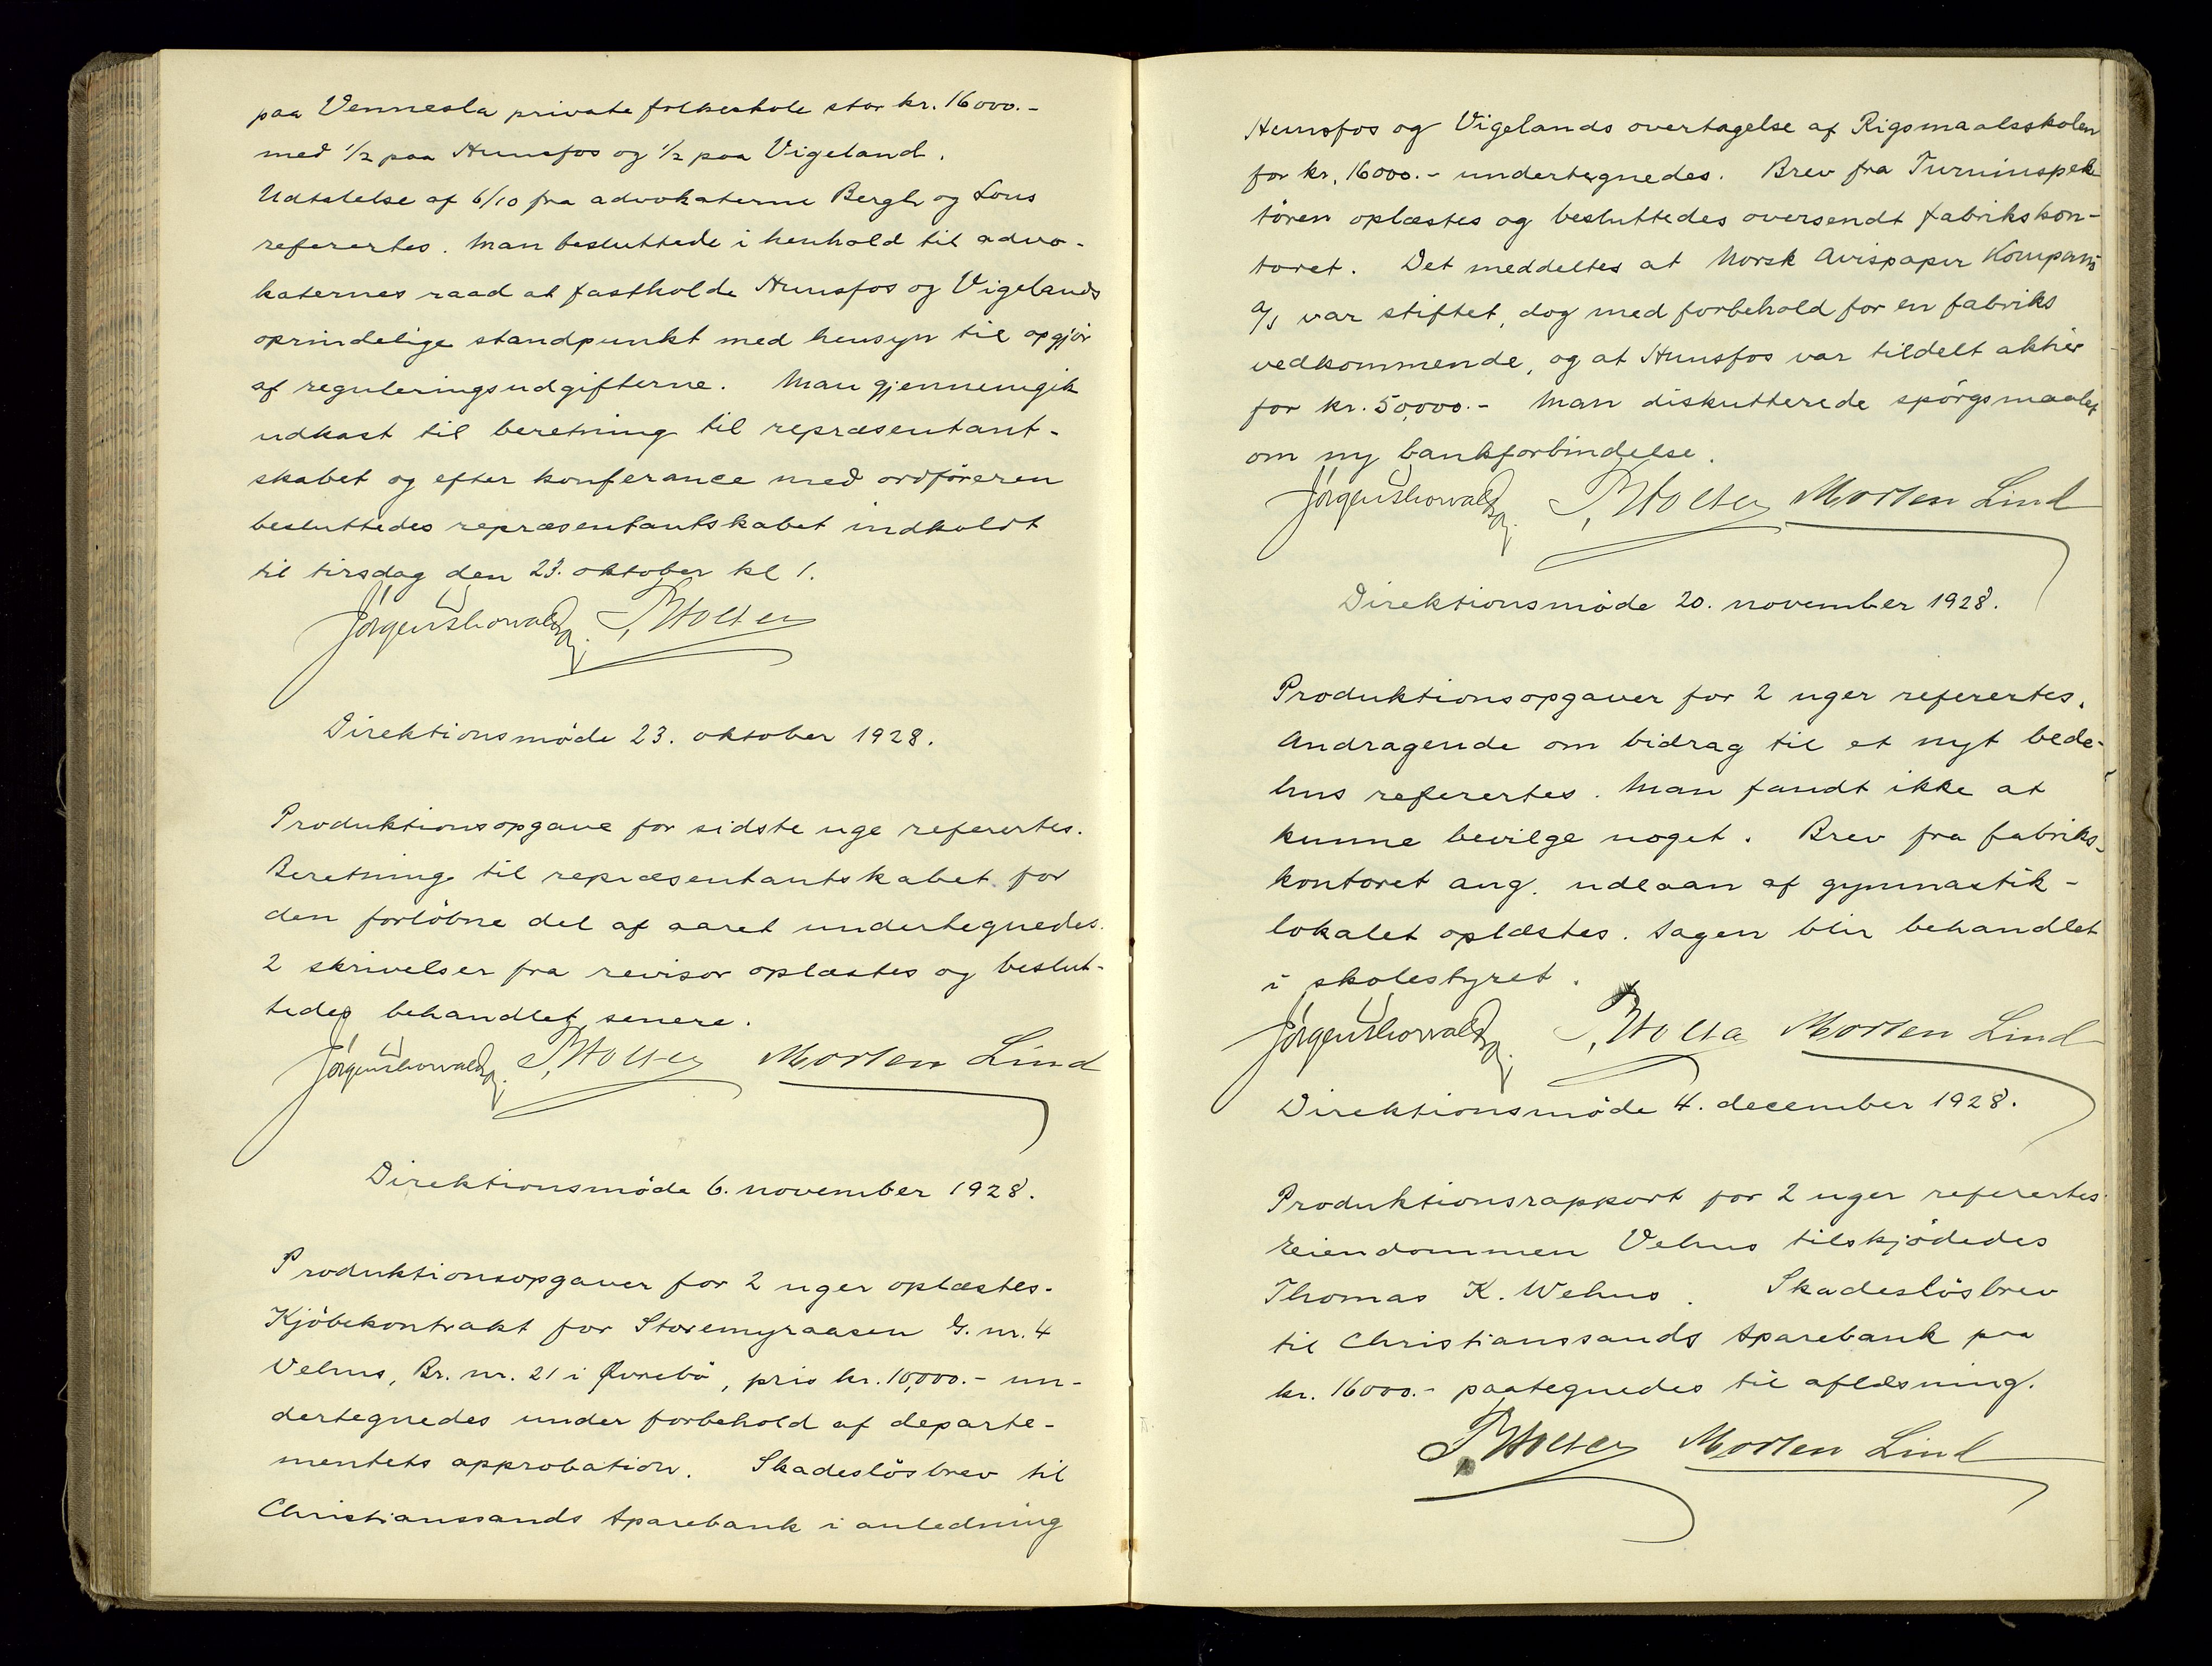 paa Vennesla private folkeskole stor kr. 16000.-
med 1/2 paa Hunsfos og 1/2 paa Vigeland.
Udtalelse af 6/10 fra advokaterne Bergh og Lous
referertes. Man besluttede i henhold til advo-
katernes raad at fastholde Hunsfos og Vigelands
oprindelige standpunkt med hensyn til opgjör
af reguleringsudgifterne. Man gjennemgik
udkast til beretning til repræsentant-
skabet og efter konferance med ordföreren
besluttedes repræsentantskabet indkaldt
til tirsdag den 23. oktober kl 1.
Direktionsmöde 23. oktober 1928.
Produktionsopgave for sidste uge referertes.
Beretning til repræsentantskabet for
den forlöbne del af aaret undertegnedes.
2 skrivelser fra revisor oplæstes og beslut-
tedes behandlet senere.
Morten Lind
Direktionsmöde 6. november 1928.
Produktionsopgaver for 2 uger oplæstes.
Kjöbekontrakt for Storemyraasen G. nr. 4
Vehus, Br. nr. 21 i Øvrebö, pris kr. 10,000.- un-
dertegnedes under forbehold af departe-
mentets approbation. Skadeslösbrev til
Christianssands Sparebank i anledning
Hunsfos og Vigelands overtagelse af Rigsmaalsskolen
for kr. 16000.- undertegnedes. Brev fra Turninspek
tören oplæstes og besluttedes oversendt fabrikskon-
toret. Det meddeltes at Norsk Avispapir Kompani
A/S var stiftet, dog med forbehold for en fabriks
vedkommende, og at Hunsfos var tildelt aktier
for kr. 50,000.- Man diskutterede spörgsmaalet
om ny bankforbindelse.
Morten Lind
Direktionsmöde 20. november 1928.
Produktionsopgaver for 2 uger referertes.
Andragende om bidrag til et nyt bede-
hus referertes. Man fandt ikke at
kunne bevilge noget. Brev fra fabriks-
kontoret ang. udlaan af gymnastik-
lokalet oplæstes. Sagen blir behandlet
i skolestyret.
Morten Lind
Direktionsmöde 4. december 1928.
Produktionsrapport for 2 uger referertes
Eiendommen Vehus tilskjödedes
Thomas K. Wehus. Skadeslösbrev
til Christianssands Sparebank paa
kr. 16000.- paategnedes til aflæsning.
Morten Lind